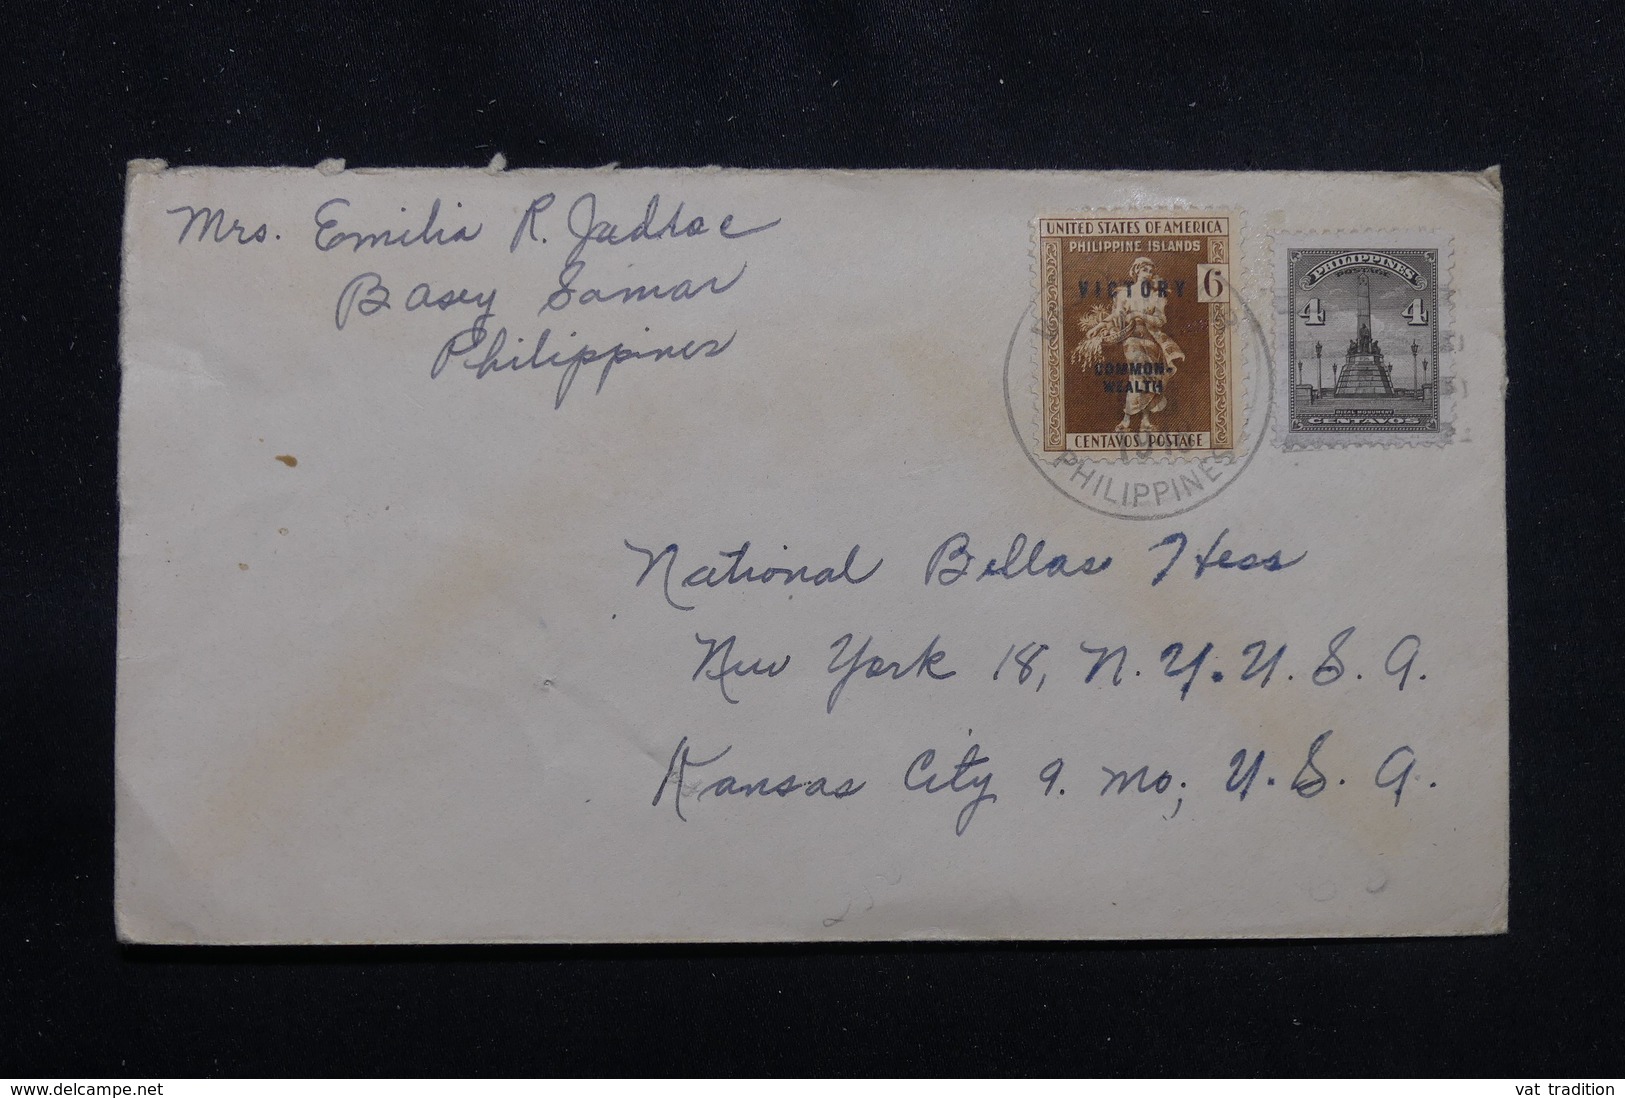 Mrs. Emilia R. Jadsoc
Basey Samar
Philippines
UNITED STATES OF AMERICA
PHILIPPINE ISLANDS
VICTORY 6
COMMON-
WEALTH
CENTAVOS POSTAGE
PHILIPPINES
PHILIPPINES
POSTAGE
4 4
RIZAL MONUMENT
CENTAVOS
National Bellas Hess
New York 18, N. Y. U. S. A.
Kansas City 9. Mo; U. S. A.
www.delcampe.net
vat_tradition